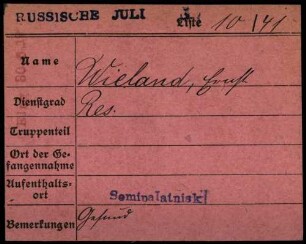 RUSSISCHE JULI Liste 10/41
Name Wieland, Ernst
Dienstgrad Res.
Truppenteil
Ort der Ge-
fangennahme
Aufenthalts-
ort Semipalatinsk!
Bemerkungen Gesund